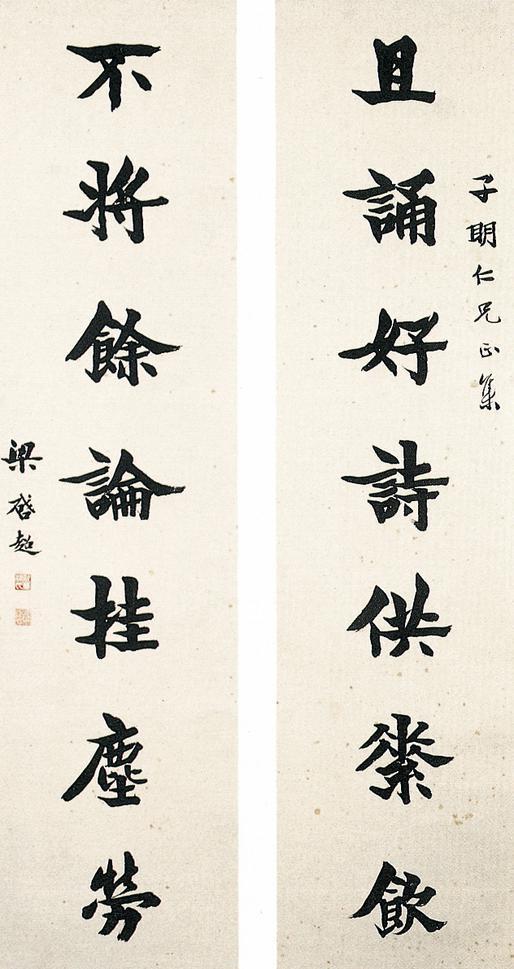 子明仁兄正集
且誦好詩供樂飲
不將餘論挂塵勞
梁啓超